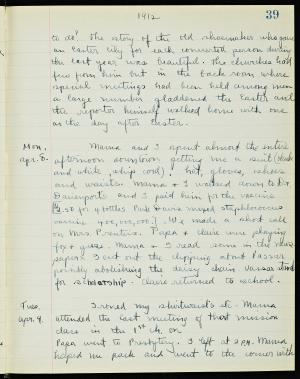 1912
39
to do? The story of the old shoemaker who gave
an Easter lily for each converted person during
the last year was beautiful. The churches had
few from him but in the back room where
special meetings had been held among men
a large number gladdened the Easter and
the reporter himself walked home with one
on the day after Easter.
Mon.
Apr. 8.
Mama and I spent almost the entire
afternoon downtown getting me a suit (black
and white, whip cord), hat, gloves, shoes
and waists. Mama & I walked down to Dr.
Davenport's and I paid him for the vaccine
$4.50 for 4 bottles.
vaccine We made a short call
on Mrs. Prentiss. Papa & Claire were playing
fox & geese. Mama & I read some in the news
papers. I cut out the clipping about Vassar
possibly abolishing the daisy chain. Vassar stands
for scholarship. Claire returned to school.
Tues.
Apr. 9.
I ironed my shirtwaists etc. Mama
attended the last meeting of the mission
class in the 1st ch. on
Papa went to Presbytery. I left at 2 P.M. Mama
helped me pack and went to the corner with